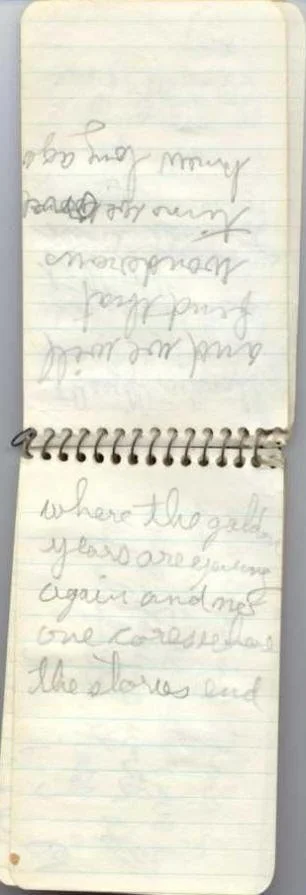 and we will
find that
wonderous
time we
knew long ago
where the golden
years are young
again and not
one cares where
the stories end